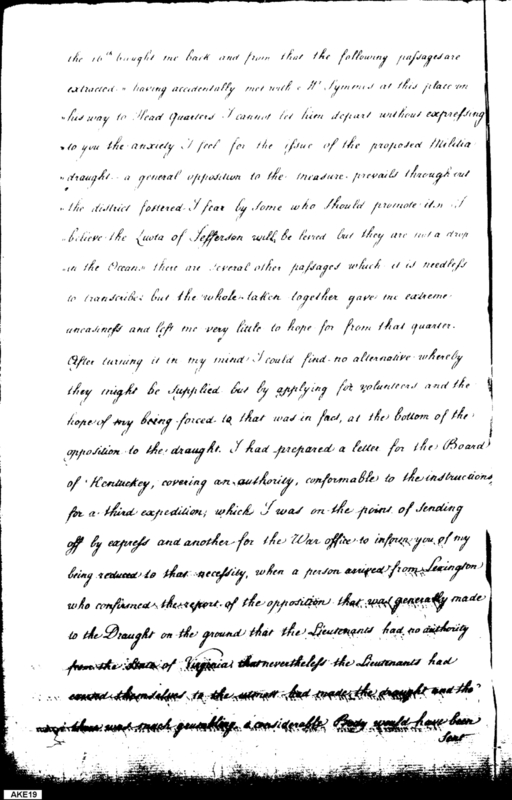 the 16th brought me back and from that the following passages are
extracted "having accidentally met with Mr Symmes at this place on
"his way to Head Quarters I cannot let him depart without expressing
"to you the anxiety I feel for the issue of the proposed Militia
"draught a general opposition to the measure prevails throughout
"the district fostered I fear by some who should promote it. I
believe the Quota of Jefferson will be levied but they are not a drop
"in the Ocean" there are several other passages which it is needless
to transcribe but the whole taken together gave me extreme
uneasiness and left me very little to hope for from that quarter.
After turning it in my mind I could find no alternative whereby
they might be supplied but by applying for volunteers and the
hope of my being forced to that was in fact, at the bottom of the
opposition to the draught. I had prepared a letter for the Board
of Kentuckey, covering an authority, conformable to the instructions
for a third expedition; which I was on the point of sending
off by express and another for the War office to inform you of my
being reduced to that necessity, when a person arrived from Lexington
who confirmed the report of the opposition that was generally made
to the Draught on the ground that the Lieutenants had no authority
from the State of Virginia that nevertheless the Lieutenants had
exerted themselves to the utmost had made the draught and tho'
there was much grumbling a considerable Body would have been
sent
AKE19